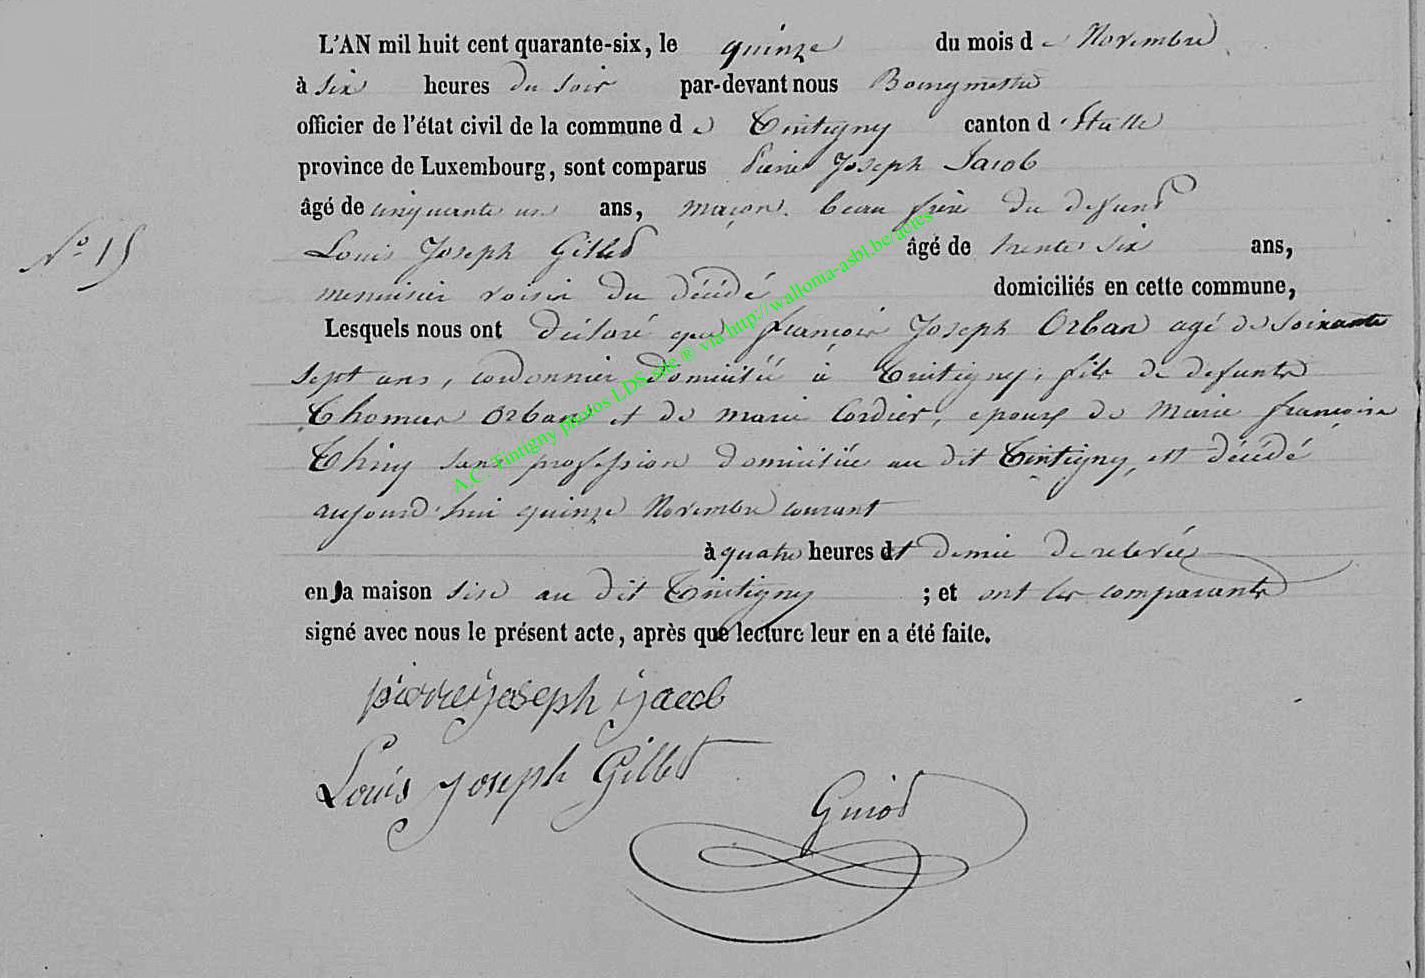 L'AN mil huit cent quarante-six, le quinze du mois de Novembre
à six heures du soir par-devant nous Bourgmestre
officier de l'état civil de la commune de Tintigny canton d'Etalle
province de Luxembourg, sont comparus Pierre Joseph Jacob
âgé de cinquante un ans, maçon beau frère du defunt
N° 15
Louis Joseph Gillet âgé de trente six ans,
menuisier voisin du décédé domiciliés en cette commune,
Lesquels nous ont déclaré que françois Joseph Orban agé de soixante
sept ans, cordonnier domicilié à Tintigny, fils de defunts
Thomas Orban et de marie Cordier, epoux de Marie françoise
Thiry sans profession domiciliée au dit Tintigny, est décédé
aujourd'hui quinze Novembre courant
à quatre heures et demie de relevée
en sa maison sise au dit Tintigny ; et ont les comparants
signé avec nous le présent acte, après que lecture leur en a été faite.
pierre joseph jacob
Louis Joseph Gillet
Guiot
A.C. Tintigny photos LDS site ® via http://wallonia-asbl.be/actes